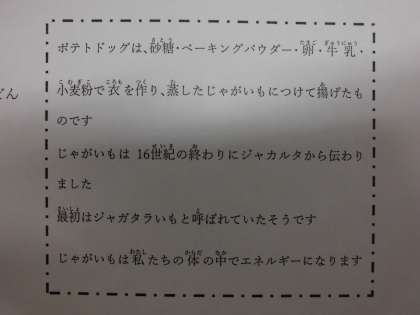 どん
ポテトドッグは、砂糖・ベーキングパウダー・卵・牛乳・
小麦粉で衣を作り、蒸したじゃがいもにつけて揚げたも
のです
じゃがいもは 16世紀の終わりにジャカルタから伝わり
ました
最初はジャガタラいもと呼ばれていたそうです
じゃがいもは私たちの体の中でエネルギーになります